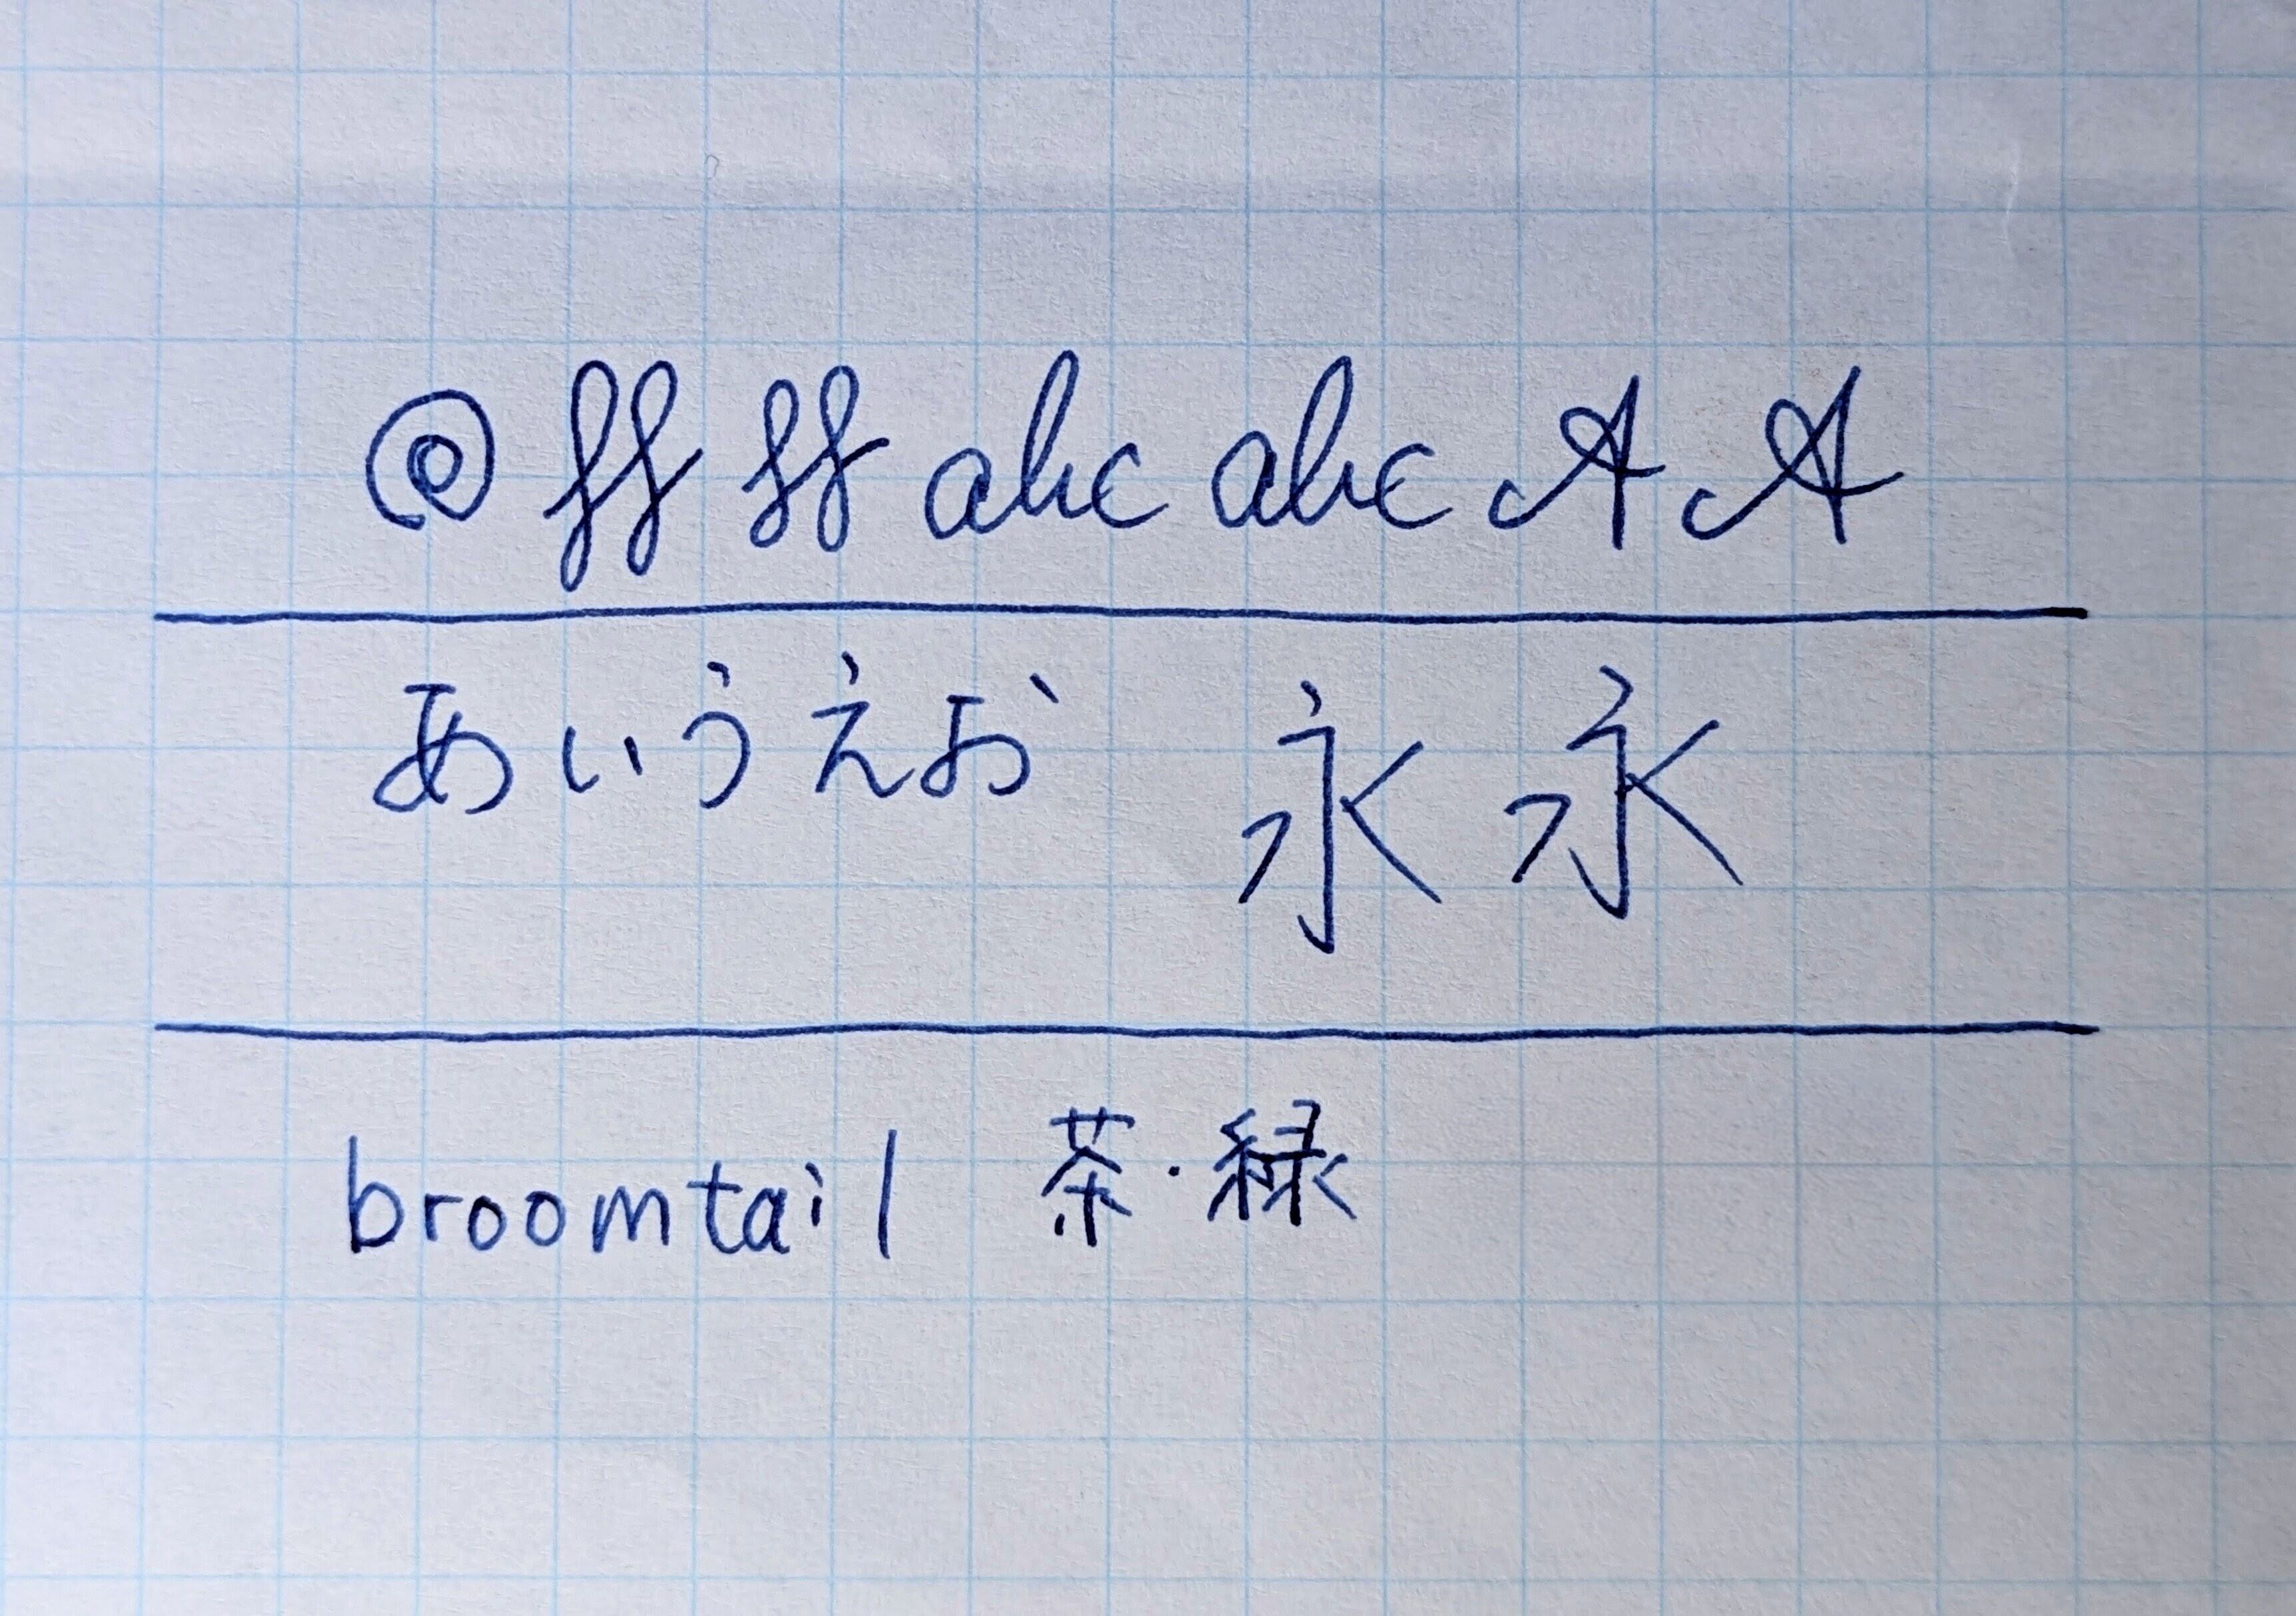 @ ff ff abc abc A A
あいうえお 永 永
broomtail 茶・緑